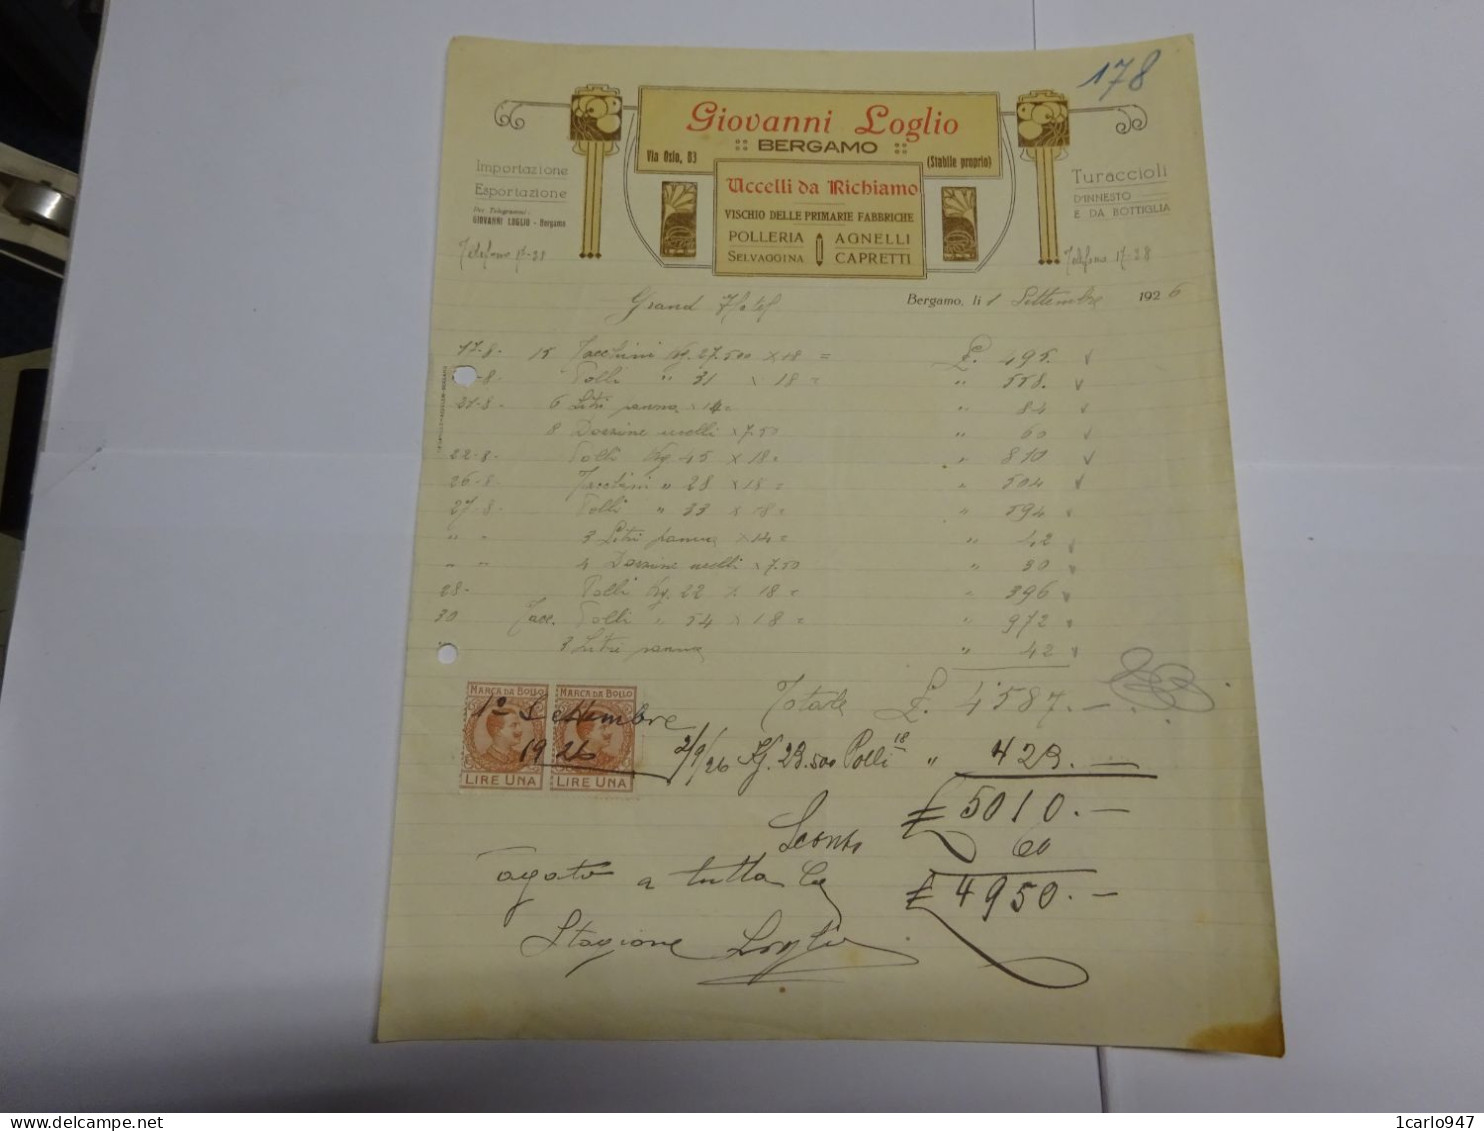 178
Giovanni Loglio
BERGAMO
Via Osio, 83
(Stabile proprio)
Importazione
Esportazione
Per Telegrammi:
GIOVANNI LOGLIO - Bergamo
Telefono 17-28
Turaccioli
D'INNESTO
E DA BOTTIGLIA
Telefono 17-28
Uccelli da Richiamo
VISCHIO DELLE PRIMARIE FABBRICHE
POLLERIA AGNELLI
SELVAGGINA CAPRETTI
Grand Hotel
Bergamo, li 1 Settembre 1926
17-8. 15 Tacchini Kg. 27.500 x 18 = £. 495.
-8. Polli " 31 x 18 = " 558.
21-8. 6 Litri panna x 14 = " 84
8 Dozzine uccelli x 7.50 " 60
22-8. Polli Kg 45 x 18 = " 810
26-8. Tacchini " 28 x 18 = " 504
27-8. Polli " 33 x 18 = " 594
" " 3 Litri panna x 14 = " 42
" " 4 Dozzine uccelli x 7.50 " 30
28- Polli Kg. 22 x 18 = " 396
30 Tacc. Polli " 54 x 18 = " 972
3 Litri panna " 42
Totale £. 4587.-
MARCA DA BOLLO MARCA DA BOLLO
1º Settembre
1926
LIRE UNA LIRE UNA
2/9/26 Kg. 23.500 Polli 18 " 423.-
£ 5010.-
Sconto 60
£ 4950.-
Pagato a tutta la
Stagione Loglio
1carlo947